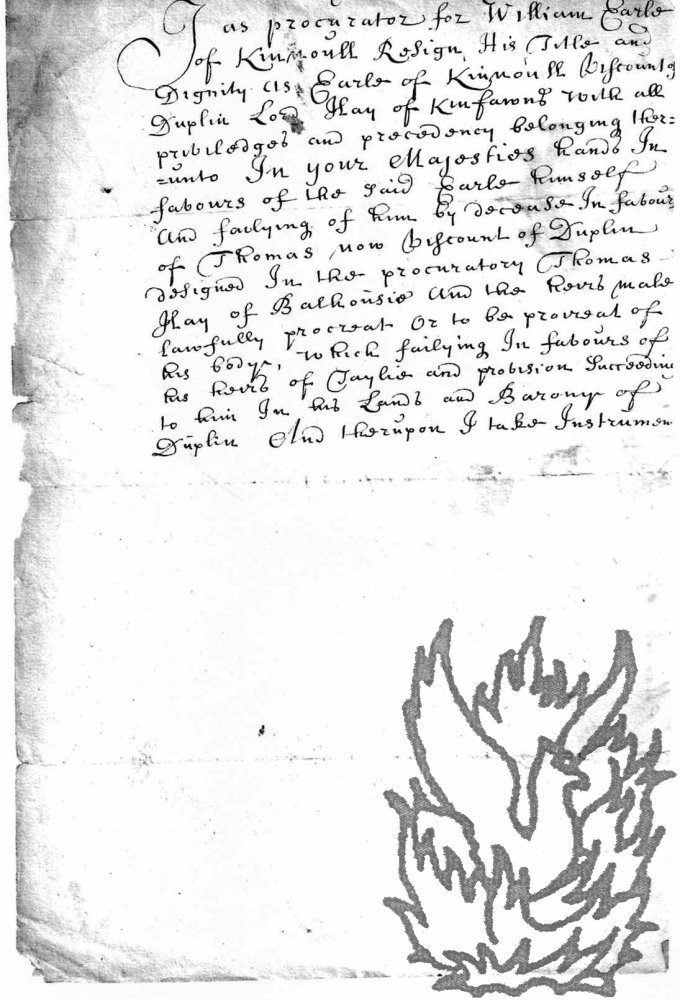 I as procurator for William Earle
of Kinnoull Resign His Title and
Dignity as Earle of Kinnoull Viscount of
Duplin Lord Hay of Kinfawns with all
priviledges and precedency belonging ther=
=unto In your Majesties hands In
favours of the said Earle himself
And failying of him by decease In favours
of Thomas now Viscount of Duplin
designed In the procuratory Thomas
Hay of Balhousie And the heirs male
lawfully procreat Or to be procreat of
his body, which failying In favours of
his heirs of Taylie and provision Succeeding
to him In his Lands and Barony of
Duplin And therupon I take Instrumen